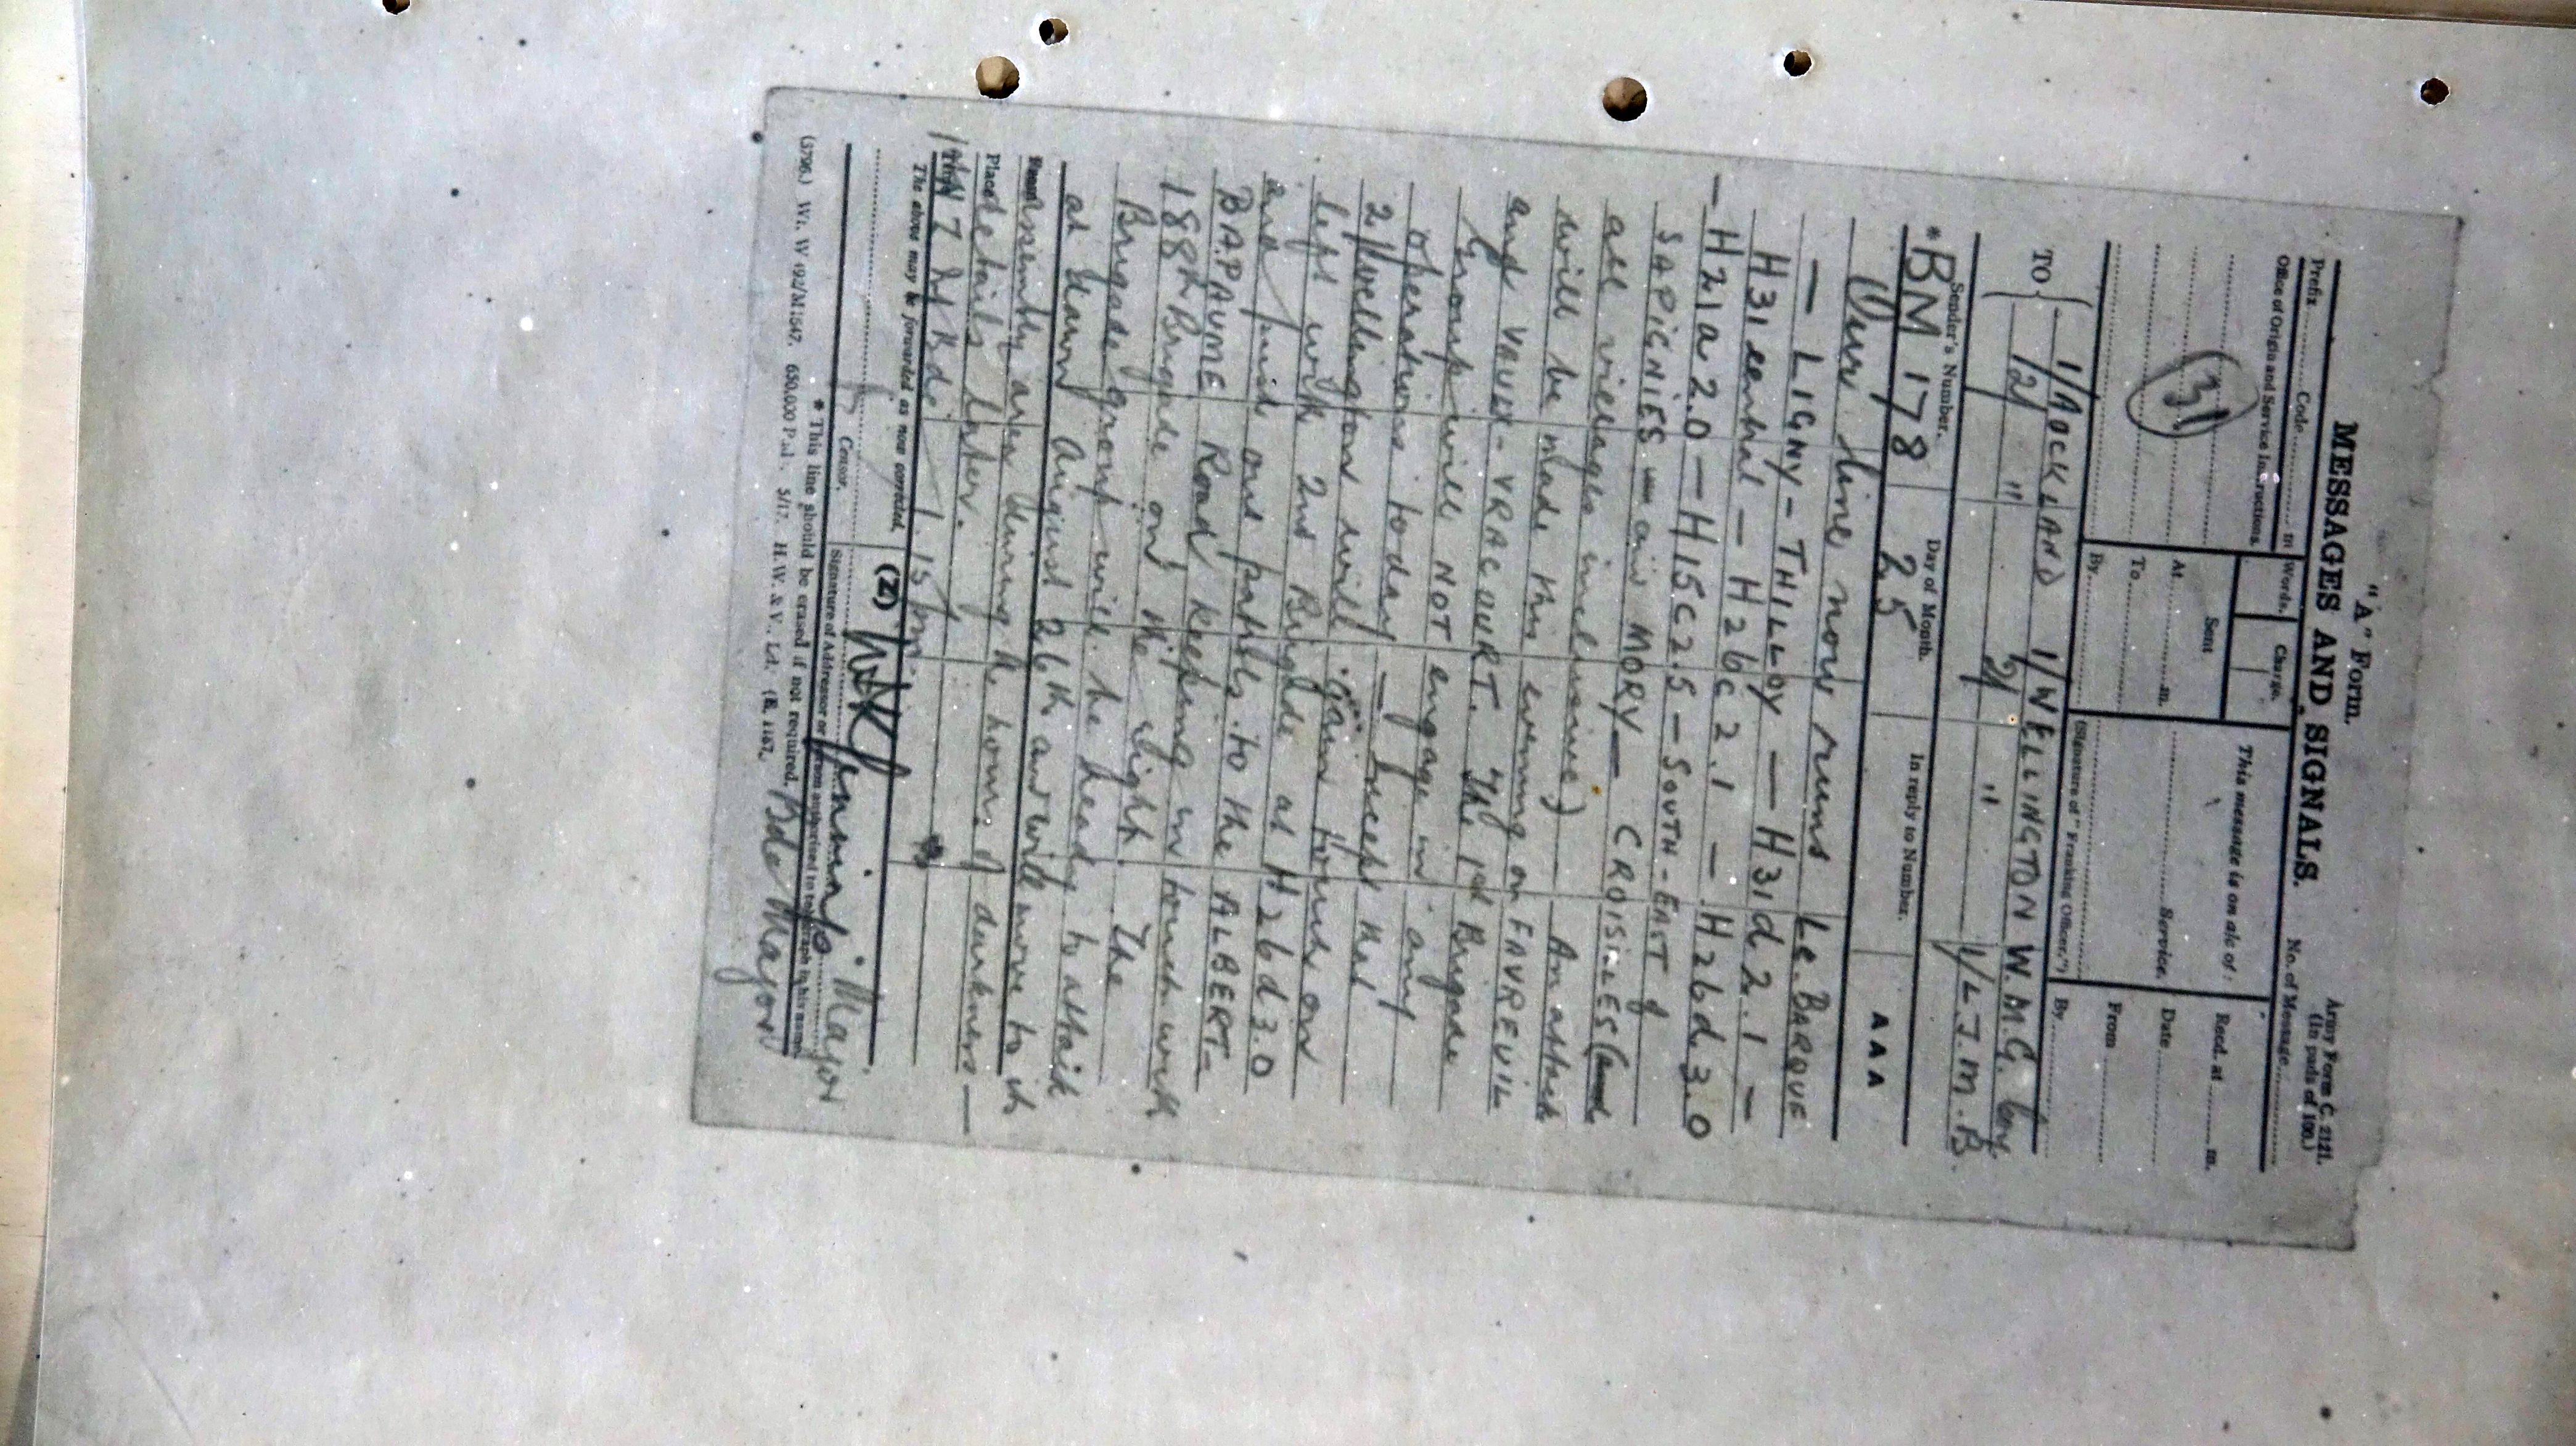 "A" Form.
Army Form C. 2121.
(In pads of 100.)
MESSAGES AND SIGNALS.
No. of Message
Prefix Code m
Words. Charge.
This message is on a/c of:
Recd. at m.
Office of Origin and Service Instructions.
Sent
Date
31
At m.
Service.
From
To
By
(Signature of "Franking Officer.")
By
TO
1/AUCKLAND 1/WELLINGTON W.M.G. Coy
1/2/ " 2/ " 1/L.T.M.B.
*Sender's Number. Day of Month. In reply to Number.
AAA
BM 178 25
Our line now runs Le. BARQUE
— LIGNY - THILLOY — H31d 2.1 —
H31 central — H26c 2.1 — H26d.3.0
— H21a 2.0 — H15C2.5 — SOUTH-EAST of
SAPIGNIES — MORY — CROISILLES
all villages inclusive) — An attack
will be made this evening on FAVREUIL
and VAULX - VRACOURT. The 1st Brigade
Group will NOT engage in any
operations today — Except that
2/Wellington will gain touch on
left with 2nd Brigade at H26d 3.0
and push out patrols to the ALBERT-
BAPAUME Road keeping in touch with
188th Brigade on the right. The
Brigade group will be ready to attack
at dawn August 26th and will move to its
assembly area during the hours of darkness —
From
Place details later.
Time
1st N Z Inf Bde 1.15 pm
The above may be forwarded as now corrected. (Z)
Jennings Major
Censor. Signature of Addressor or person authorised to telegraph in his name.
* This line should be erased if not required. Bde Major
(5796.) Wt. W 492/M1647. 650,000 Pads. 5/17. H.W. & V., Ld. (E. 1187.)